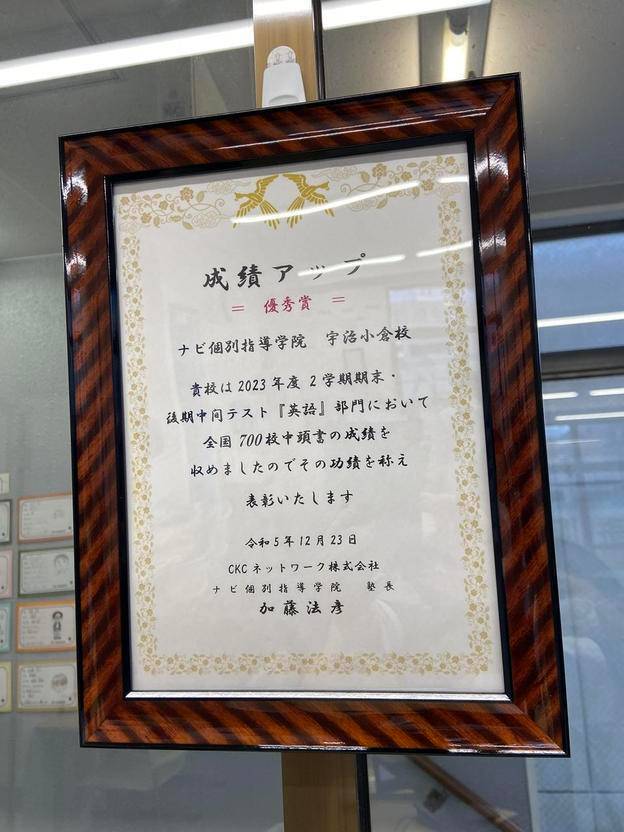 成績アップ
＝ 優秀賞 ＝
ナビ個別指導学院 宇治小倉校
貴校は2023年度2学期期末・
後期中間テスト『英語』部門において
全国700校中頭書の成績を
収めましたのでその功績を称え
表彰いたします
令和5年12月23日
CKCネットワーク株式会社
ナビ個別指導学院 塾長
加藤法彦